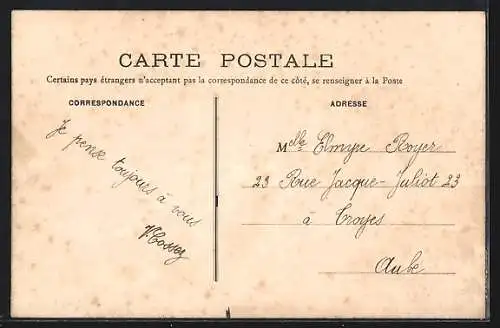 CARTE POSTALE
Certains pays étrangers n'acceptant pas la correspondance de ce côté, se renseigner à la Poste
CORRESPONDANCE
Je pense toujours à vous
ADRESSE
Melle Elmyre Royer
23 Rue Jacque-Juliot 23
à Troyes
Aube